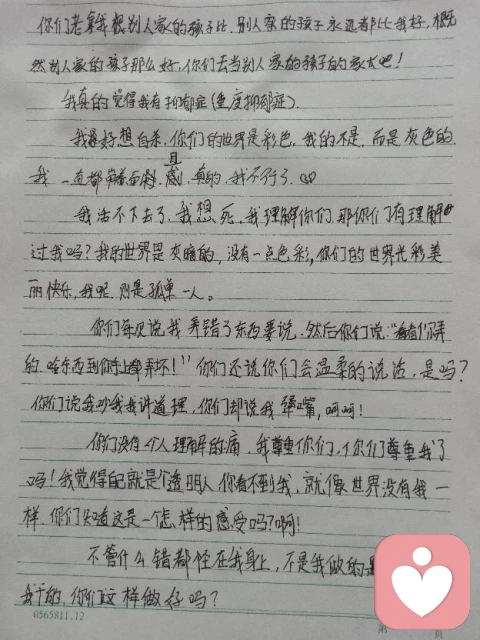 你们老拿我跟别人家的孩子比，别人家的孩子永远都比我好，既
然别人家的孩子那么好，你们去当别人家的孩子的家长吧！
我真的觉得我有抑郁症（重度抑郁症）.
我好想自杀，你们的世界是彩色，我的不是，而是灰色的.
我一直都戴着面具，真的，我不行了.
我活不下去了，我想死，我理解你们，那你们有理解
过我吗？我的世界是灰暗的，没有一点色彩，你们的世界光彩美
丽快乐，我呢，则是孤单一人。
你们每次说我弄错了东西要说，然后你们说：“看看你弄
的，啥东西到你手上都弄坏！”你们还说你们会温柔的说话，是吗？
你们说我吵我我讲道理，你们却说我犟嘴，呵呵！
你们没有个人理解的痛，我尊重你们，你们尊重我了
吗！我觉得自己就是个透明人，你看不到我，就像世界没有我一
样，你们知道这是一个怎样的感受吗？啊！
不管什么错都怪在我身上，不是我做的
我干的，你们这样做好吗？
0565811.12
第 页